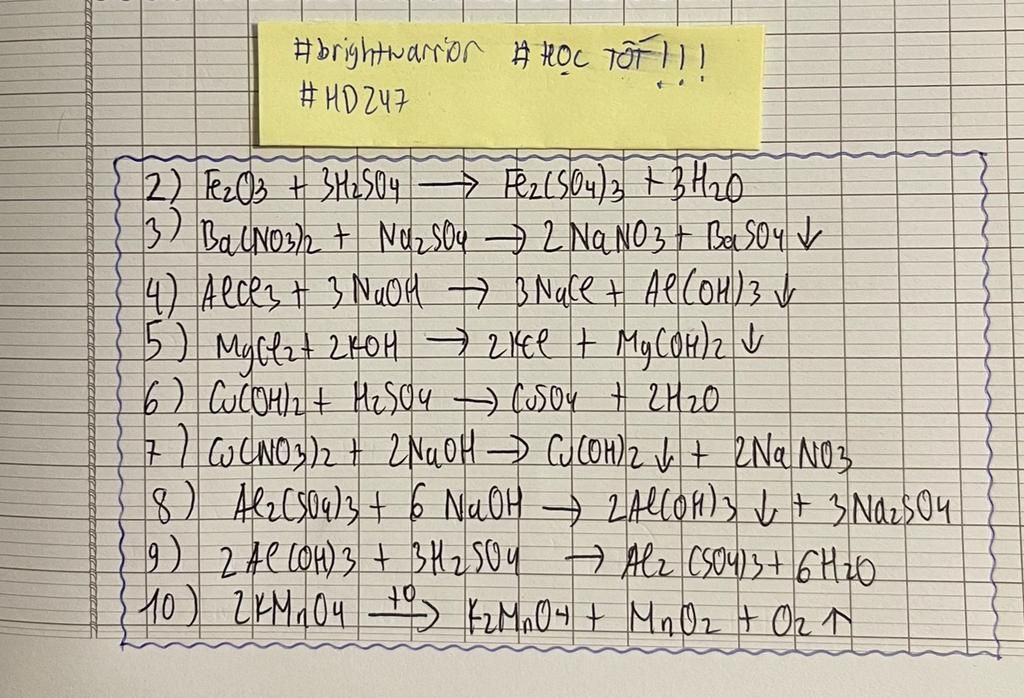 #brightwarrior #HỌC TỐT!!!
#HD247
2) Fe2O3 + 3H2SO4 → Fe2(SO4)3 + 3H2O
3) Ba(NO3)2 + Na2SO4 → 2NaNO3 + BaSO4 ↓
4) AlCl3 + 3NaOH → 3NaCl + Al(OH)3 ↓
5) MgCl2 + 2KOH → 2KCl + Mg(OH)2 ↓
6) Cu(OH)2 + H2SO4 → CuSO4 + 2H2O
7) Cu(NO3)2 + 2NaOH → Cu(OH)2 ↓ + 2NaNO3
8) Al2(SO4)3 + 6NaOH → 2Al(OH)3 ↓ + 3Na2SO4
9) 2Al(OH)3 + 3H2SO4 → Al2(SO4)3 + 6H2O
10) 2KMnO4 t0→ K2MnO4 + MnO2 + O2 ↑